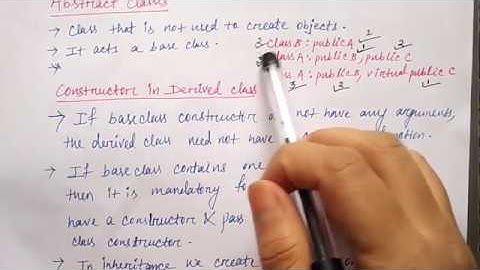 Abstract Classes
→ Class that is not used to create objects.
→ It acts a base class.
3 class B : public A
class A : public B, public C
class A : public B, virtual public C
Constructors in Derived class
→ If base class constructor not have any arguments,
the derived class need not have a
→ If base class contains one
then it is mandatory fo
have a constructor & pass
class constructor.
→ In inheritance we create